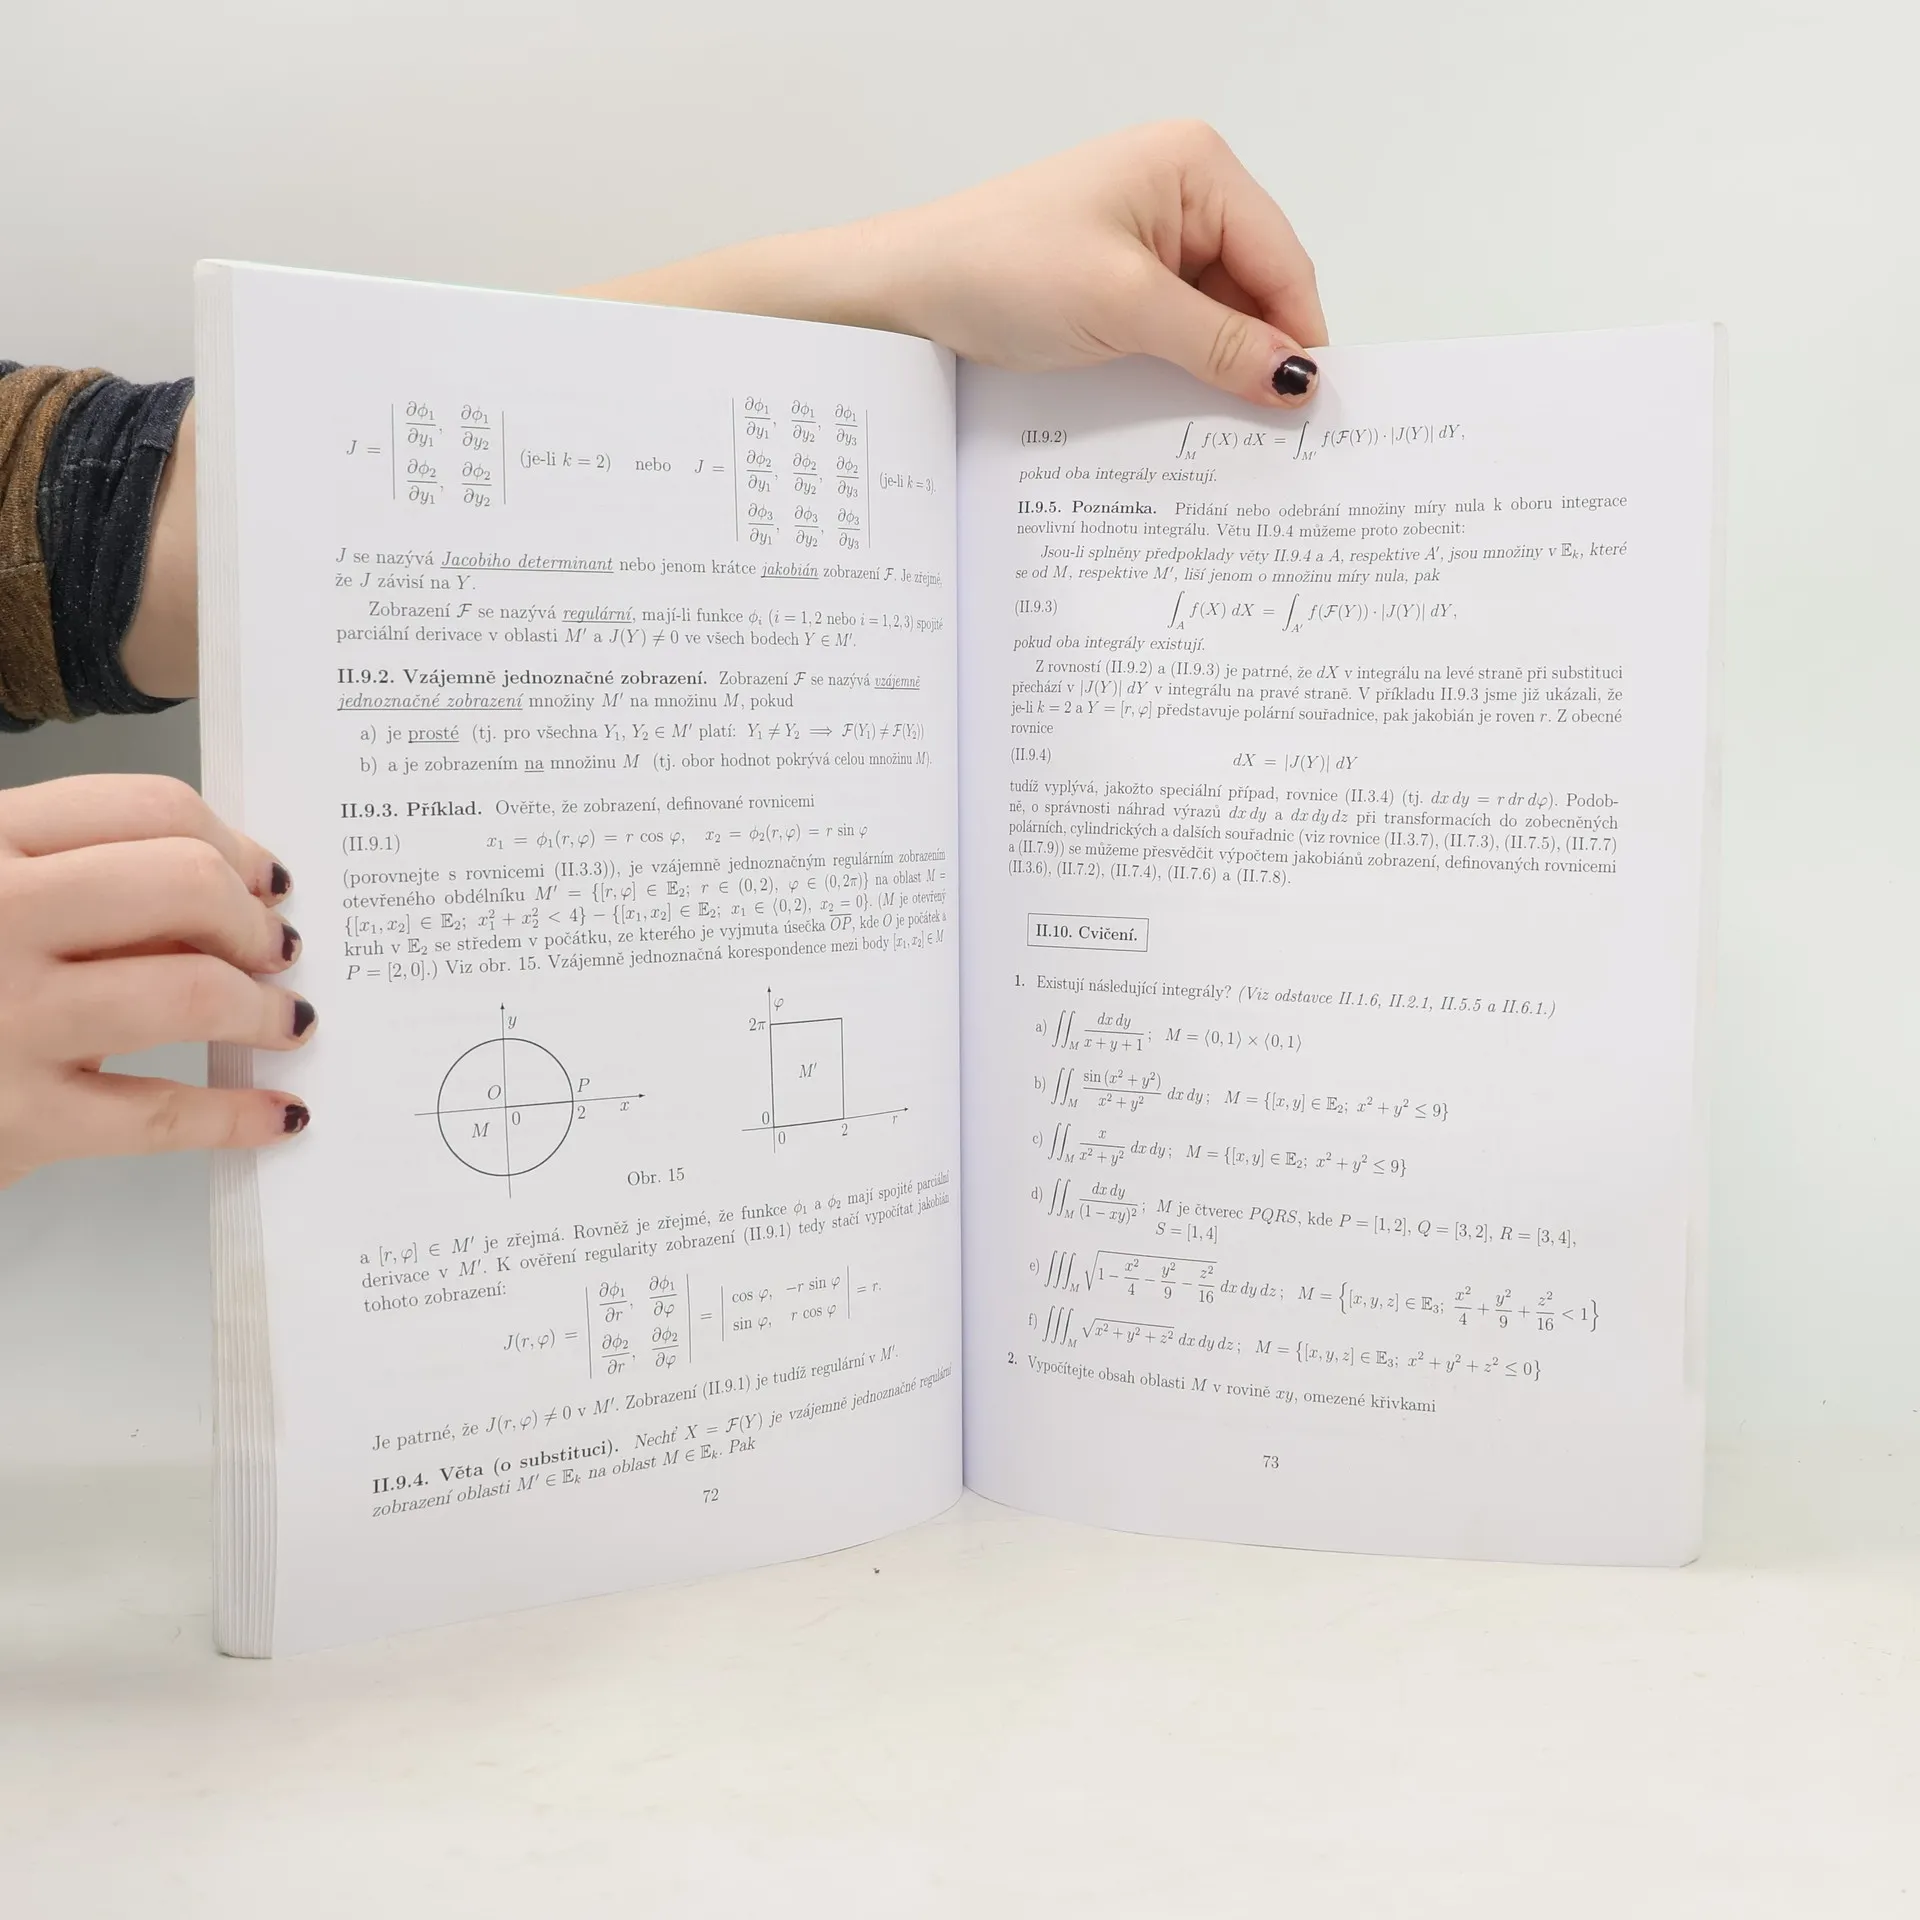 J = | ∂ϕ₁/∂y₁, ∂ϕ₁/∂y₂ ; ∂ϕ₂/∂y₁, ∂ϕ₂/∂y₂ | (je-li k = 2) nebo J = | ∂ϕ₁/∂y₁, ∂ϕ₁/∂y₂, ∂ϕ₁/∂y₃ ; ∂ϕ₂/∂y₁, ∂ϕ₂/∂y₂, ∂ϕ₂/∂y₃ ; ∂ϕ₃/∂y₁, ∂ϕ₃/∂y₂, ∂ϕ₃/∂y₃ | (je-li k = 3).
J se nazývá Jacobiho determinant nebo jenom krátce jakobián zobrazení F. Je zřejmé,
že J závisí na Y.
Zobrazení F se nazývá regulární, mají-li funkce ϕᵢ (i = 1, 2 nebo i = 1, 2, 3) spojité
parciální derivace v oblasti M′ a J(Y) ≠ 0 ve všech bodech Y ∈ M′.
II.9.2. Vzájemně jednoznačné zobrazení. Zobrazení F se nazývá vzájemně
jednoznačné zobrazení množiny M′ na množinu M, pokud
a) je prosté (tj. pro všechna Y₁, Y₂ ∈ M′ platí: Y₁ ≠ Y₂ ⟹ F(Y₁) ≠ F(Y₂))
b) a je zobrazením na množinu M (tj. obor hodnot pokrývá celou množinu M).
II.9.3. Příklad. Ověřte, že zobrazení, definované rovnicemi
(II.9.1) x₁ = ϕ₁(r, φ) = r cos φ, x₂ = ϕ₂(r, φ) = r sin φ
(porovnejte s rovnicemi (II.3.3)), je vzájemně jednoznačným regulárním zobrazením
otevřeného obdélníku M′ = {[r, φ] ∈ 𝔼₂; r ∈ (0, 2), φ ∈ (0, 2π)} na oblast M =
{[x₁, x₂] ∈ 𝔼₂; x₁² + x₂² < 4} − {[x₁, x₂] ∈ 𝔼₂; x₁ ∈ ⟨0, 2), x₂ = 0}. (M je otevřený
kruh v 𝔼₂ se středem v počátku, ze kterého je vyjmuta úsečka O̅P̅, kde O je počátek a
P = [2, 0].) Viz obr. 15. Vzájemně jednoznačná korespondence mezi body [x₁, x₂] ∈ M
y
O
P
0
2
x
M
φ
2π
M′
0
0
2
r
Obr. 15
a [r, φ] ∈ M′ je zřejmá. Rovněž je zřejmé, že funkce ϕ₁ a ϕ₂ mají spojité parciální
derivace v M′. K ověření regularity zobrazení (II.9.1) tedy stačí vypočítat jakobián
tohoto zobrazení:
J(r, φ) = | ∂ϕ₁/∂r, ∂ϕ₁/∂φ ; ∂ϕ₂/∂r, ∂ϕ₂/∂φ | = | cos φ, −r sin φ ; sin φ, r cos φ | = r.
Je patrné, že J(r, φ) ≠ 0 v M′. Zobrazení (II.9.1) je tudíž regulární v M′.
II.9.4. Věta (o substituci). Nechť X = F(Y) je vzájemně jednoznačné regulární
zobrazení oblasti M′ ∈ 𝔼ₖ na oblast M ∈ 𝔼ₖ. Pak
72
(II.9.2) ∫_M f(X) dX = ∫_M′ f(F(Y)) · |J(Y)| dY,
pokud oba integrály existují.
II.9.5. Poznámka. Přidání nebo odebrání množiny míry nula k oboru integrace
neovlivní hodnotu integrálu. Větu II.9.4 můžeme proto zobecnit:
Jsou-li splněny předpoklady věty II.9.4 a A, respektive A′, jsou množiny v 𝔼ₖ, které
se od M, respektive M′, liší jenom o množinu míry nula, pak
(II.9.3) ∫_A f(X) dX = ∫_A′ f(F(Y)) · |J(Y)| dY,
pokud oba integrály existují.
Z rovností (II.9.2) a (II.9.3) je patrné, že dX v integrálu na levé straně při substituci
přechází v |J(Y)| dY v integrálu na pravé straně. V příkladu II.9.3 jsme již ukázali, že
je-li k = 2 a Y = [r, φ] představuje polární souřadnice, pak jakobián je roven r. Z obecné
rovnice
(II.9.4) dX = |J(Y)| dY
tudíž vyplývá, jakožto speciální případ, rovnice (II.3.4) (tj. dx dy = r dr dφ). Podob-
ně, o správnosti náhrad výrazů dx dy a dx dy dz při transformacích do zobecněných
polárních, cylindrických a dalších souřadnic (viz rovnice (II.3.7), (II.7.3), (II.7.5), (II.7.7)
a (II.7.9)) se můžeme přesvědčit výpočtem jakobiánů zobrazení, definovaných rovnicemi
(II.3.6), (II.7.2), (II.7.4), (II.7.6) a (II.7.8).
II.10. Cvičení.
1. Existují následující integrály? (Viz odstavce II.1.6, II.2.1, II.5.5 a II.6.1.)
a) ∬_M dx dy/(x + y + 1); M = ⟨0, 1⟩ × ⟨0, 1⟩
b) ∬_M sin (x² + y²)/(x² + y²) dx dy; M = {[x, y] ∈ 𝔼₂; x² + y² ≤ 9}
c) ∬_M x/(x² + y²) dx dy; M = {[x, y] ∈ 𝔼₂; x² + y² ≤ 9}
d) ∬_M dx dy/(1 − xy)²; M je čtverec PQRS, kde P = [1, 2], Q = [3, 2], R = [3, 4],
S = [1, 4]
e) ∭_M √(1 − x²/4 − y²/9 − z²/16) dx dy dz; M = {[x, y, z] ∈ 𝔼₃; x²/4 + y²/9 + z²/16 < 1}
f) ∭_M √(x² + y² + z²) dx dy dz; M = {[x, y, z] ∈ 𝔼₃; x² + y² + z² ≤ 0}
2. Vypočítejte obsah oblasti M v rovině xy, omezené křivkami
73